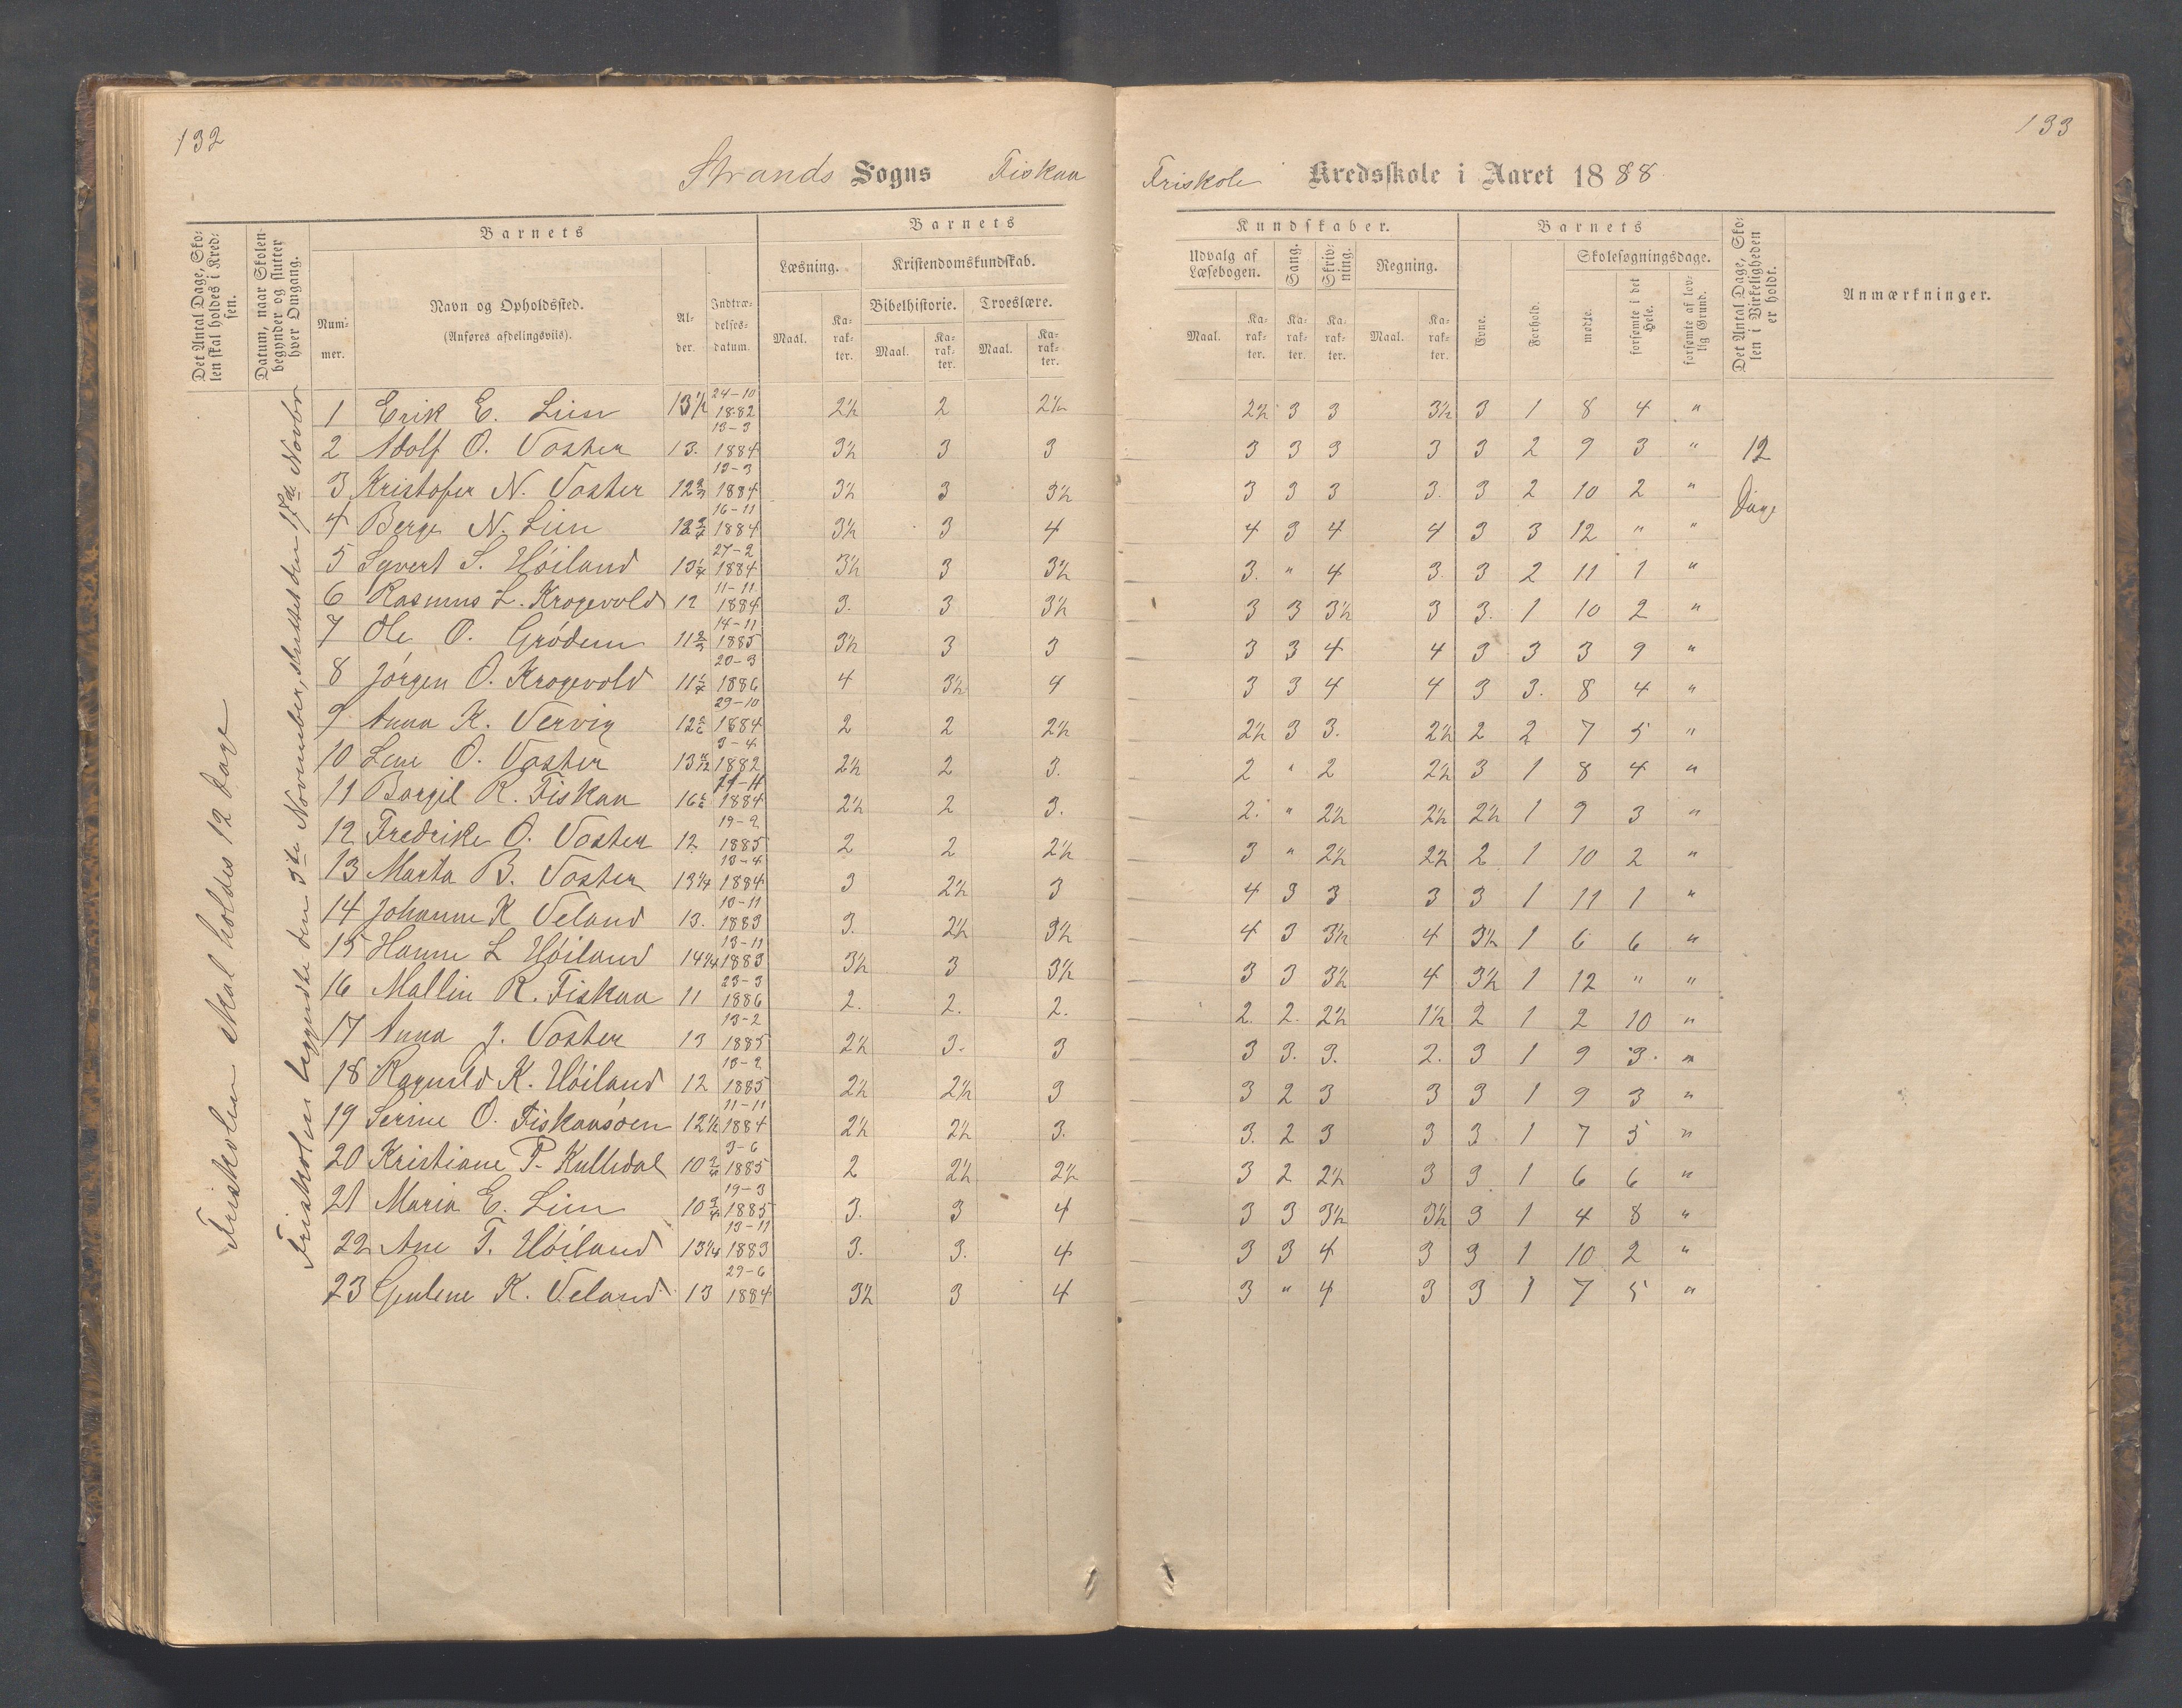 132
133
Strands Sogns Fiskaa Friskole Kredsskole i Aaret 1888.
Det Antal Dage, Skolen skal holdes i Kredsen.
Datum, naar Skolen begynder og slutter hver Omgang.
Barnets
Nummer.
Navn og Opholdssted.
(Anføres afdelingsviis).
Alder.
Indtrædelsesdatum.
Barnets Kundskaber.
Læsning.
Kristendomskundskab.
Bibelhistorie.
Troeslære.
Maal. Karakter. Maal. Karakter. Maal. Karakter.
Udvalg af Læsebogen.
Sang.
Skrivning.
Regning.
Maal. Karakter. Karakter. Karakter. Maal. Karakter.
Barnets
Evne.
Forhold.
Skolesøgningsdage.
mødte.
forsømte i det Hele.
forsømte af lovlig Grund.
Det Antal Dage, Skolen i Virkeligheden er holdt.
Anmærkninger.
Friskolen skal holdes 12 Dage
Friskolen begyndte den 3die November, sluttet den 17de Novbr
1 Erik E. Lien 13½ 24-10 1882 2½ 2 2½ 2½ 3 3 3½ 3 1 8 4 "
2 Adolf O. Voster 13. 13-3 1884 3½ 3 3 3 3 3 3 3 2 9 3 " 12
3 Kristofer N. Voster 13-3 1884 3½ 3 3½ 3 3 3 3. 3 2 10 2 " Dage
4 Berge N. Lien 16-11 1884 3½ 3 4 4 3 4 4 3 3 12 " "
5 Syvert S. Høiland 27-2 1884 3½ 3 3½ 3. " 4 3. 3 2 11 1 "
6 Rasmus L. Krogevold 12 11-11 1884 3. 3 3½ 3 3 3½ 3 3. 1 10 2 "
7 Ole O. Grødem 14-11 1885 3½ 3 3 3 3 4 4 3 3 3 9 "
8 Jørgen O. Krogevold 20-3 1886 4 3½ 4 3 3 4 4 3 3. 8 4 "
9 Anna K. Vervig 29-10 1884 2 2 2½ 2½ 3 3. 2½ 2 2 7 5 "
10 Lene O. Voster 3-4 1882 2½ 2 3. 2 " 2 2½ 3 1 8 4 "
11 Borgil R. Fiskaa 1884 2½ 2 3. 2. " 2½ 2½ 2½ 1 9 3 "
12 Fredrike O. Voster 12 19-2 1885 2 2 2½ 3 " 2½ 2½ 2 1 10 2 "
13 Marta B. Voster 13¼ 13-4 1884 3 2½ 3 4 3 3 3 3 1 11 1 "
14 Johanne K Veland 13. 13-11 1883 3. 2½ 3½ 4 3 3½ 4 3½ 1 6 6 "
15 Hanne L Høiland 14¼ 13-11 1883 3½ 3 3½ 3 3 3½ 4 3½ 1 12 " "
16 Mallin R. Fiskaa 11 23-3 1886 2. 2. 2. 2. 2. 2½ 1½ 2 1 2 10 "
17 Anna J. Voster 13 13-2 1885 2½ 3. 3 3 3. 3. 2. 3 1 9 3. "
18 Ragnild K. Høiland 12 13-2 1885 2½ 2½ 3 3 2 3 3 3 1 9 3 "
19 Serine O. Fiskaasøen 12½ 11-11 1884 2½ 2½ 3. 3. 2 3 3 3. 1 7 5 "
20 Kristiane P. Kulledal 3-6 1885 2 2½ 2½ 3 2 2½ 3 3 1 6 6 "
21 Maria E. Lien 10¾ 19-3 1885 3. 3 4 3 3 3½ 3½ 3 1 4 8 "
22 Ane T. Høiland 13¼ 13-11 1883 3. 3. 4 3 3 4 3 3 1 10 2 "
23 Gunlene K. Veland 13 29-6 1884 3½ 3 4 3 " 4 3 3 1 7 5 "